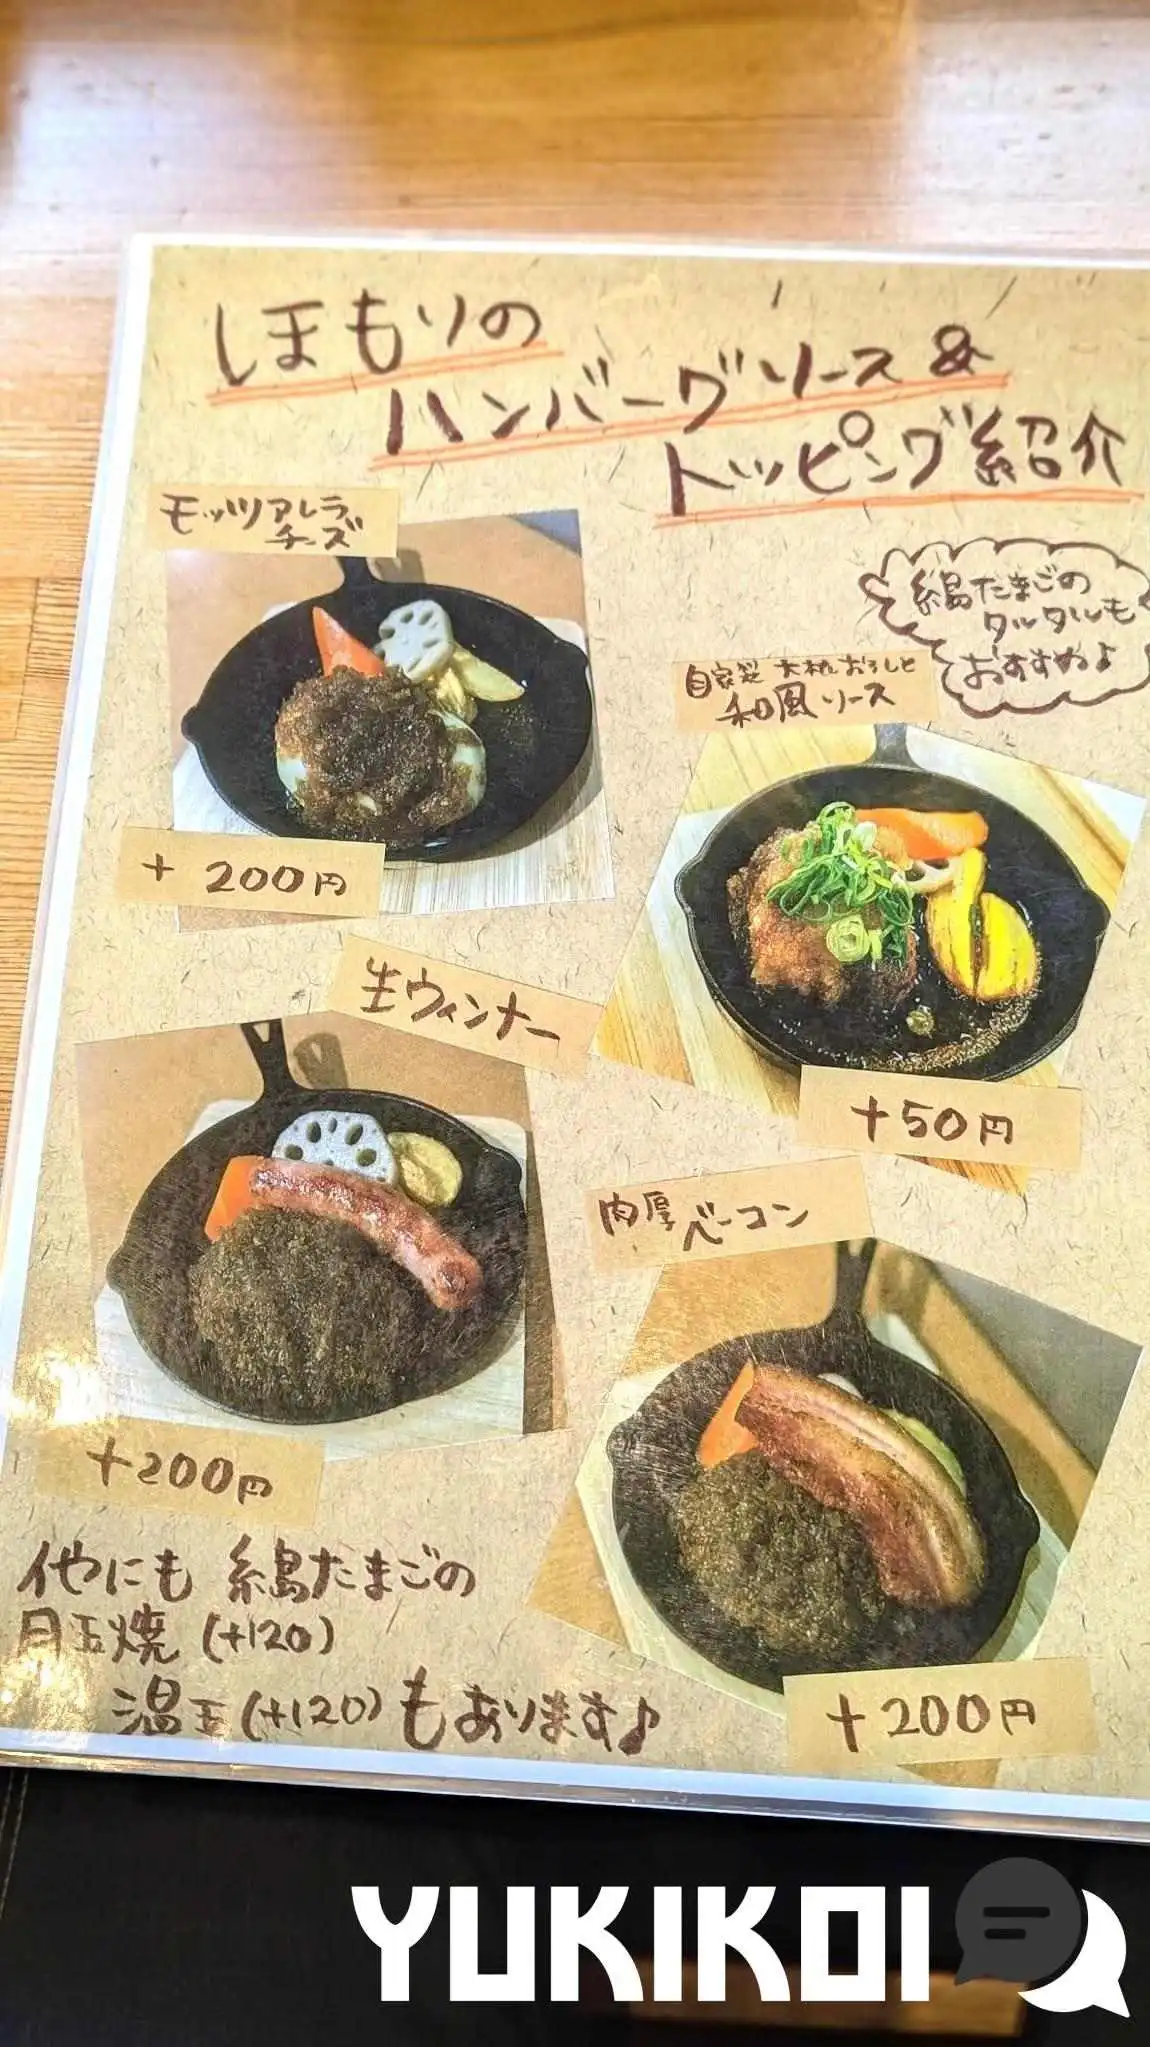 しほもりの
ハンバーグソース&
トッピング紹介
モッツァレラ
チーズ
糸島たまごの
タルタルも
おすすめ♪
自家製 大根おろしと
和風ソース
+200円
生ウィンナー
+50円
肉厚ベーコン
+200円
他にも 糸島たまごの
目玉焼(+120)
温玉(+120)もあります♪
+200円
YUKIKOI